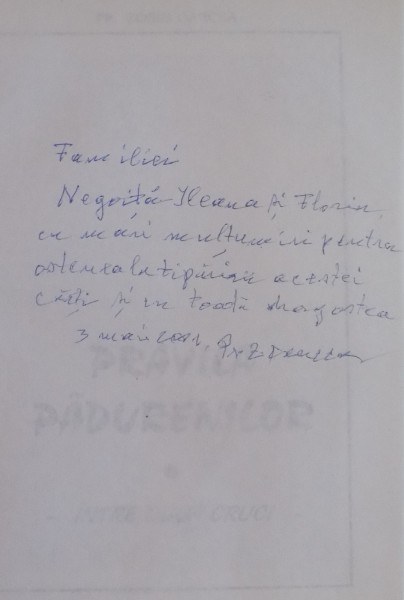 Familiei
Negoiță Ileana și Florin,
cu mări mulțumiri pentru
osteneala tipăririi acestei
cărți și cu toată dragostea
3 mai 2001,
PRAVILA
PĂDURENILOR